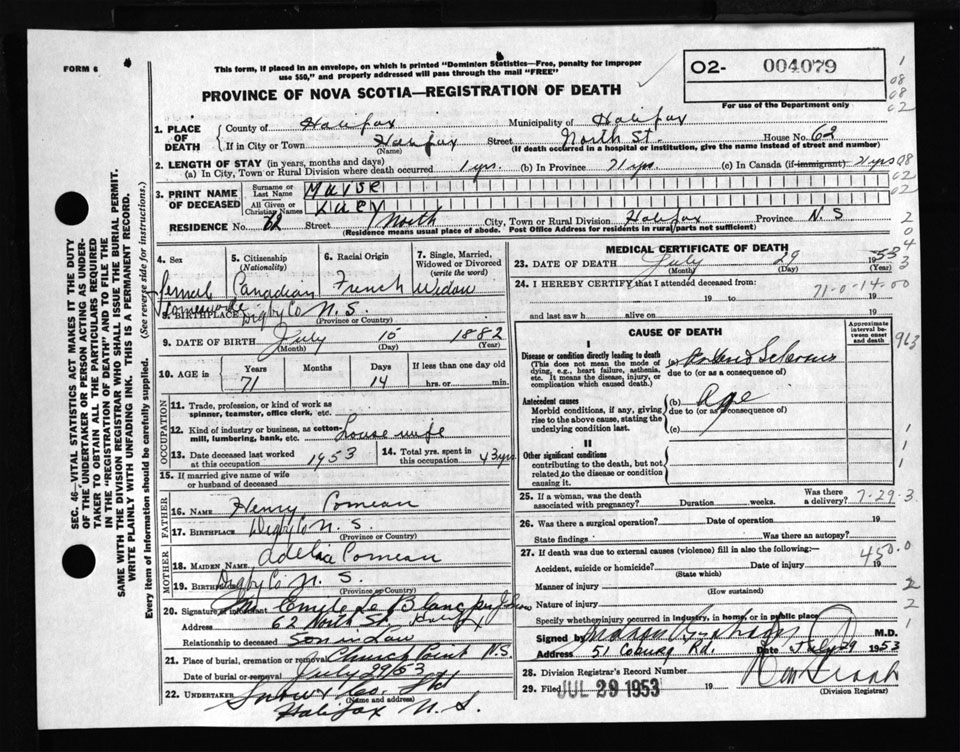 FORM 6
This form, if placed in an envelope, on which is printed "Dominion Statistics—Free, penalty for improper
use $50," and properly addressed will pass through the mail "FREE"
PROVINCE OF NOVA SCOTIA—REGISTRATION OF DEATH
O2- 004079
For use of the Department only
1. PLACE OF DEATH
County of Halifax Municipality of Halifax
If in City or Town Halifax Street North St. House No. 62
(Name) (If death occurred in a hospital or institution, give the name instead of street and number)
2. LENGTH OF STAY (in years, months and days)
(a) In City, Town or Rural Division where death occurred 1 yrs. (b) In Province 71 yrs. (c) In Canada (if immigrant) 71 yrs
3. PRINT NAME OF DECEASED
Surname or Last Name MUISE
All Given or Christian Names LUCY
RESIDENCE No. 62 Street North City, Town or Rural Division Halifax Province N.S
(Residence means usual place of abode. Post Office Address for residents in rural parts not sufficient)
4. Sex 5. Citizenship (Nationality) 6. Racial Origin 7. Single, Married, Widowed or Divorced (write the word)
Female Canadian French Widow
8. BIRTHPLACE Digby Co N.S.
(Province or Country)
9. DATE OF BIRTH July 15 1882
(Month) (Day) (Year)
10. AGE in Years Months Days If less than one day old
71 14 hrs. or min.
OCCUPATION
11. Trade, profession, or kind of work as
spinner, teamster, office clerk, etc.
12. Kind of industry or business, as cotton-
mill, lumbering, bank, etc. House wife
13. Date deceased last worked
at this occupation 1953
14. Total yrs. spent in
this occupation 43 yrs
15. If married give name of wife
or husband of deceased
FATHER
16. NAME Henry Comeau
17. BIRTHPLACE Digby Co N.S.
(Province or Country)
MOTHER
18. MAIDEN NAME Adelia Comeau
19. BIRTHPLACE Digby Co N.S.
(Province or Country)
20. Signature of informant Emile Le Blanc per
Address 62 North St. Halifax
Relationship to deceased Son in Law
21. Place of burial, cremation or removal Church Point N.S.
Date of burial or removal July 29/53
22. UNDERTAKER Snow & Co. Ltd
(Name and address)
Halifax N.S.
MEDICAL CERTIFICATE OF DEATH
23. DATE OF DEATH July 29 1953
(Month) (Day) (Year)
24. I HEREBY CERTIFY that I attended deceased from:
19 to 19
71-0-14-00
and last saw h alive on 19
CAUSE OF DEATH
Approximate interval between onset and death
I
Disease or condition directly leading to death
(This does not mean the mode of
dying, e.g., heart failure, asthenia,
etc. It means the disease, injury, or
complication which caused death.)
(a)
due to (or as a consequence of)
Antecedent causes
Morbid conditions, if any, giving
rise to the above cause, stating the
underlying condition last.
(b) Age
due to (or as a consequence of)
(c)
II
Other significant conditions
contributing to the death, but not
related to the disease or condition
causing it.
25. If a woman, was the death
associated with pregnancy? Duration weeks. Was there a delivery?
7-29-3
26. Was there a surgical operation? Date of operation 19
State findings Was there an autopsy?
27. If death was due to external causes (violence) fill in also the following:—
Accident, suicide or homicide? Date of injury 19
450.0
(State which)
Manner of injury
(How sustained)
Nature of injury
Specify whether injury occurred in industry, in home, or in public place
Signed by M.D.
Address 51 Coburg Rd. Date July 29 1953
28. Division Registrar's Record Number
29. Filed JUL 29 1953 19
(Division Registrar)
SEC. 46—VITAL STATISTICS ACT MAKES IT THE DUTY
OF THE UNDERTAKER OR PERSON ACTING AS UNDER-
TAKER TO OBTAIN ALL THE PARTICULARS REQUIRED
IN THE "REGISTRATION OF DEATH" AND TO FILE THE
SAME WITH THE DIVISION REGISTRAR WHO SHALL ISSUE THE BURIAL PERMIT.
WRITE PLAINLY WITH UNFADING INK. THIS IS A PERMANENT RECORD.
Every item of information should be carefully supplied. (See reverse side for instructions.)
963